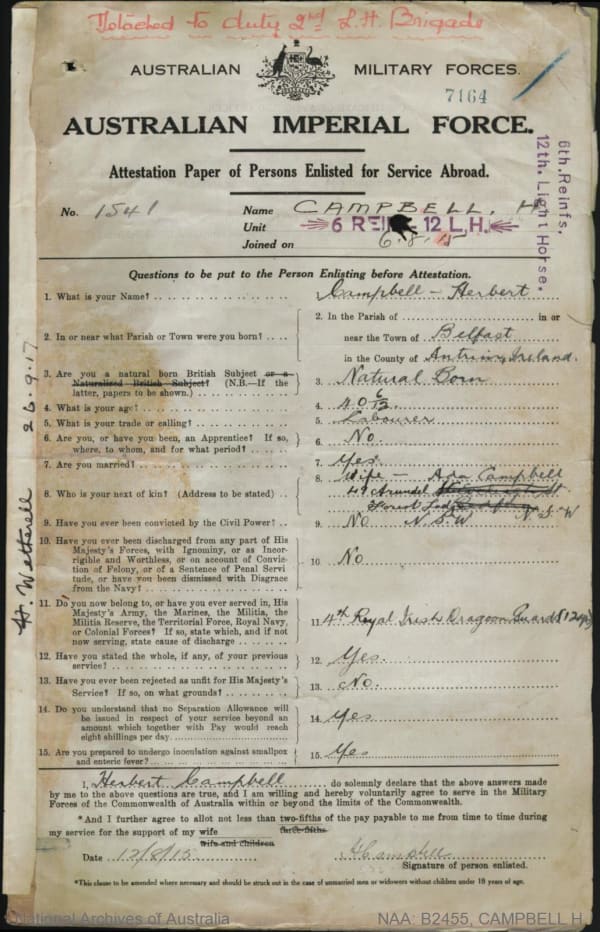 Detached to duty 2nd L.H. Brigade
AUSTRALIAN MILITARY FORCES.
7164
AUSTRALIAN IMPERIAL FORCE.
Attestation Paper of Persons Enlisted for Service Abroad.
6th. Reinfs,
12th. Light Horse.
No. 1541 Name CAMPBELL, H
Unit 6 REIN 12 L.H.
Joined on 6.8.15
Questions to be put to the Person Enlisting before Attestation.
1. What is your Name? Campbell - Herbert
2. In or near what Parish or Town were you born? 2. In the Parish of in or
near the Town of Belfast
in the County of Antrim, Ireland.
3. Are you a natural born British Subject or a
Naturalized British Subject? (N.B.—If the
latter, papers to be shown.) 3. Natural Born
4. What is your age? 4. 40 6/12
5. What is your trade or calling? 5. Labourer
6. Are you, or have you been, an Apprentice? If so,
where, to whom, and for what period? 6. No.
7. Are you married? 7. Yes.
8. Who is your next of kin? (Address to be stated) 8. Wife - Ada Campbell
49 Arundel St.
Forest Lodge
N.S.W N.S.W
9. Have you ever been convicted by the Civil Power? 9. No
10. Have you ever been discharged from any part of His
Majesty's Forces, with Ignominy, or as Incor-
rigible and Worthless, or on account of Convic-
tion of Felony, or of a Sentence of Penal Servi-
tude, or have you been dismissed with Disgrace
from the Navy? 10 No
11. Do you now belong to, or have you ever served in, His
Majesty's Army, the Marines, the Militia, the
Militia Reserve, the Territorial Force, Royal Navy,
or Colonial Forces? If so, state which, and if not
now serving, state cause of discharge 11. 4th Royal Irish Dragoon Guards (12 yrs)
12. Have you stated the whole, if any, of your previous
service? 12. Yes.
13. Have you ever been rejected as unfit for His Majesty's
Service? If so, on what grounds? 13. No.
14. Do you understand that no Separation Allowance will
be issued in respect of your service beyond an
amount which together with Pay would reach
eight shillings per day. 14. Yes
15. Are you prepared to undergo inoculation against smallpox
and enteric fever? 15. Yes
H. Wetherell 26.9.17
I, Herbert Campbell do solemnly declare that the above answers made
by me to the above questions are true, and I am willing and hereby voluntarily agree to serve in the Military
Forces of the Commonwealth of Australia within or beyond the limits of the Commonwealth.
*And I further agree to allot not less than two-fifths of the pay payable to me from time to time during
three-fifths
my service for the support of my wife
wife and children
Date 12/8/15 H Campbell
Signature of person enlisted.
*This clause to be amended where necessary and should be struck out in the case of unmarried men or widowers without children under 18 years of age.
National Archives of Australia NAA: B2455, CAMPBELL H